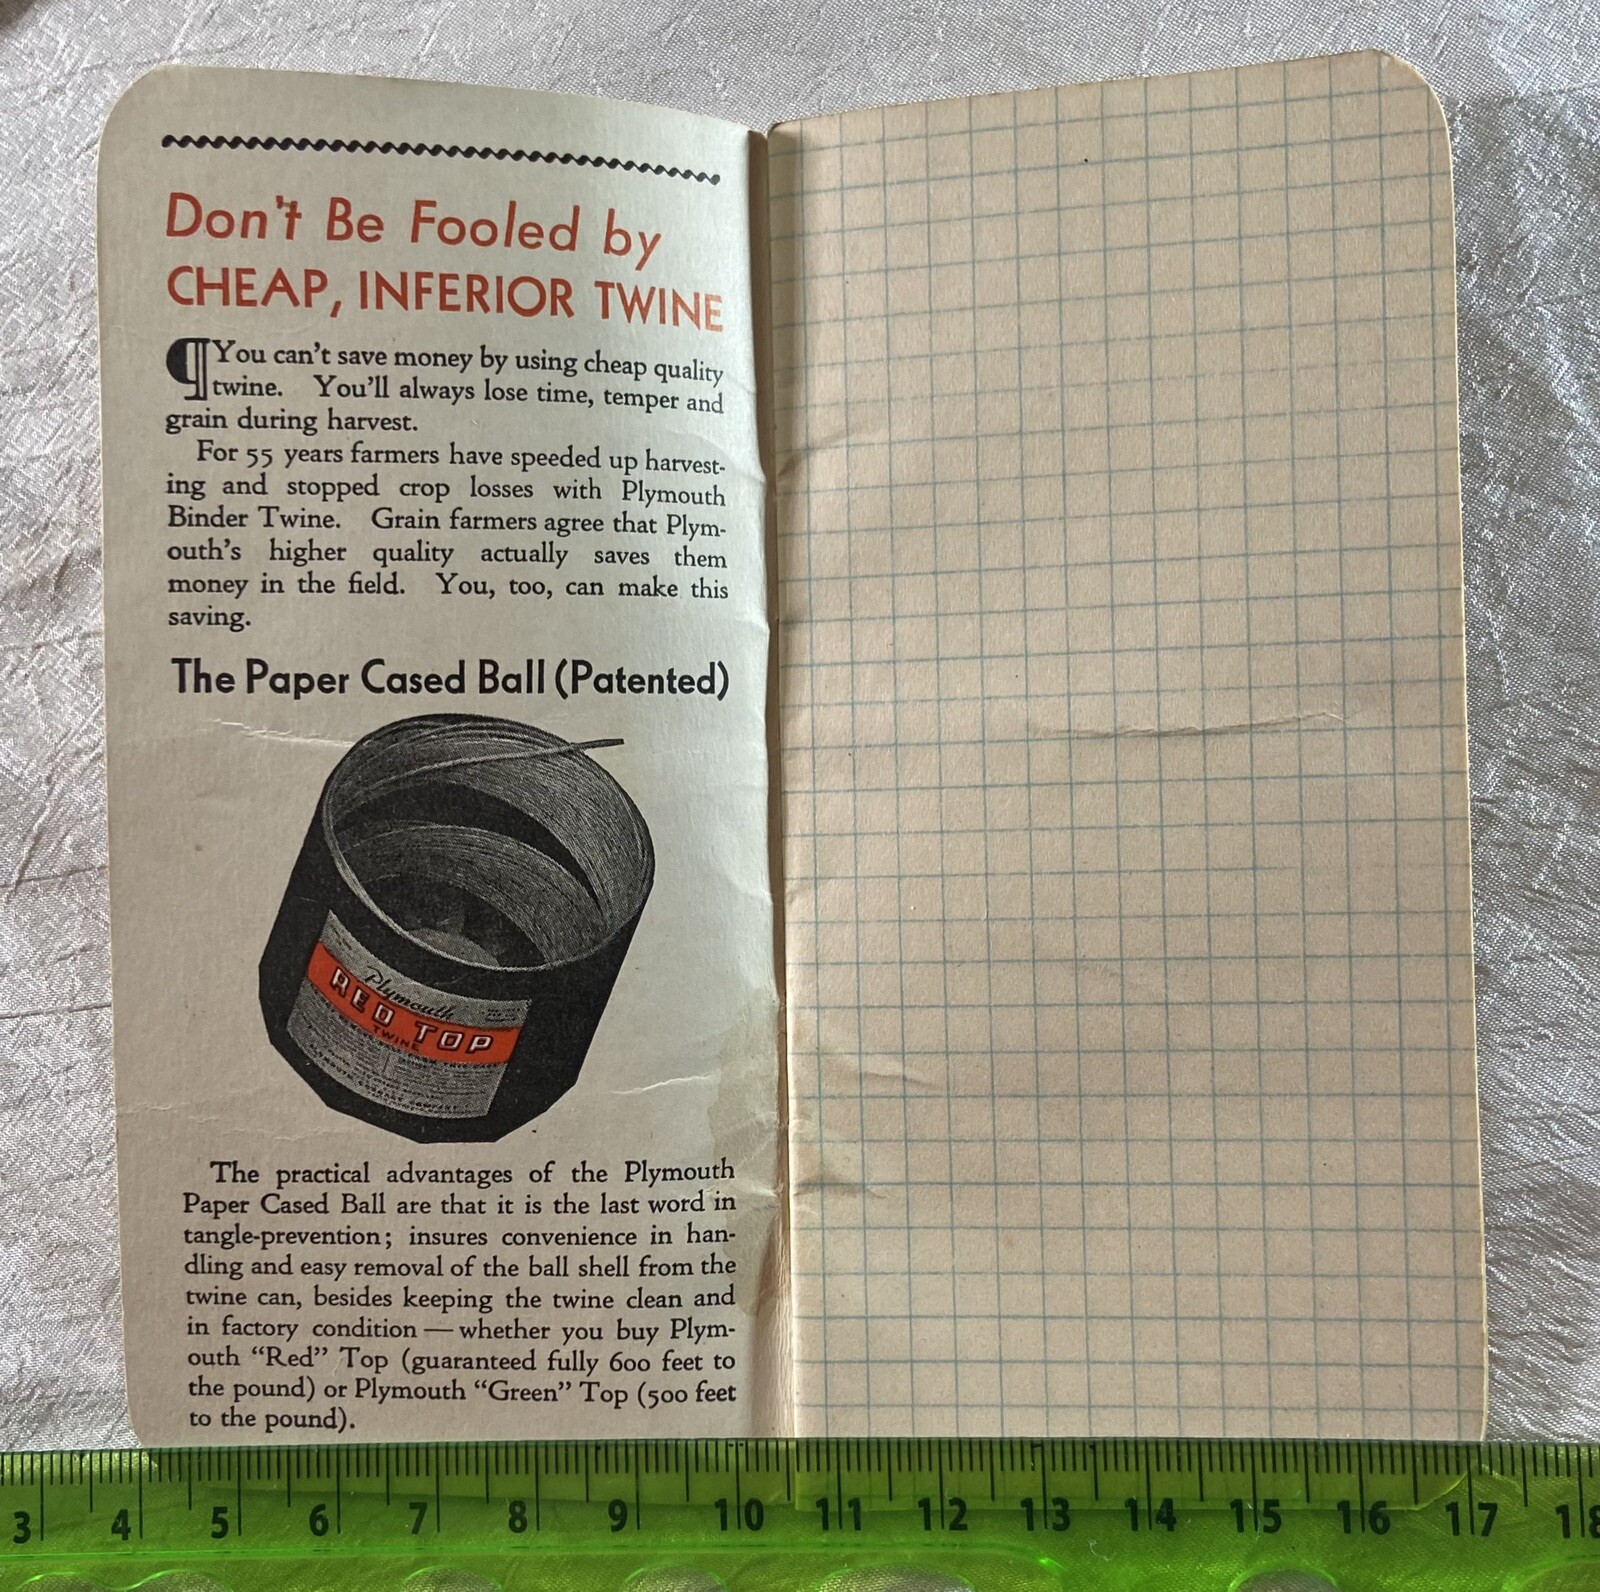 Don't Be Fooled by
CHEAP, INFERIOR TWINE
¶You can't save money by using cheap quality
twine. You'll always lose time, temper and
grain during harvest.
For 55 years farmers have speeded up harvest-
ing and stopped crop losses with Plymouth
Binder Twine. Grain farmers agree that Plym-
outh's higher quality actually saves them
money in the field. You, too, can make this
saving.
The Paper Cased Ball (Patented)
Plymouth
RED TOP
TWINE
The practical advantages of the Plymouth
Paper Cased Ball are that it is the last word in
tangle-prevention; insures convenience in han-
dling and easy removal of the ball shell from the
twine can, besides keeping the twine clean and
in factory condition — whether you buy Plym-
outh "Red" Top (guaranteed fully 600 feet to
the pound) or Plymouth "Green" Top (500 feet
to the pound).
3 4 5 6 7 8 9 10 11 12 13 14 15 16 17 18